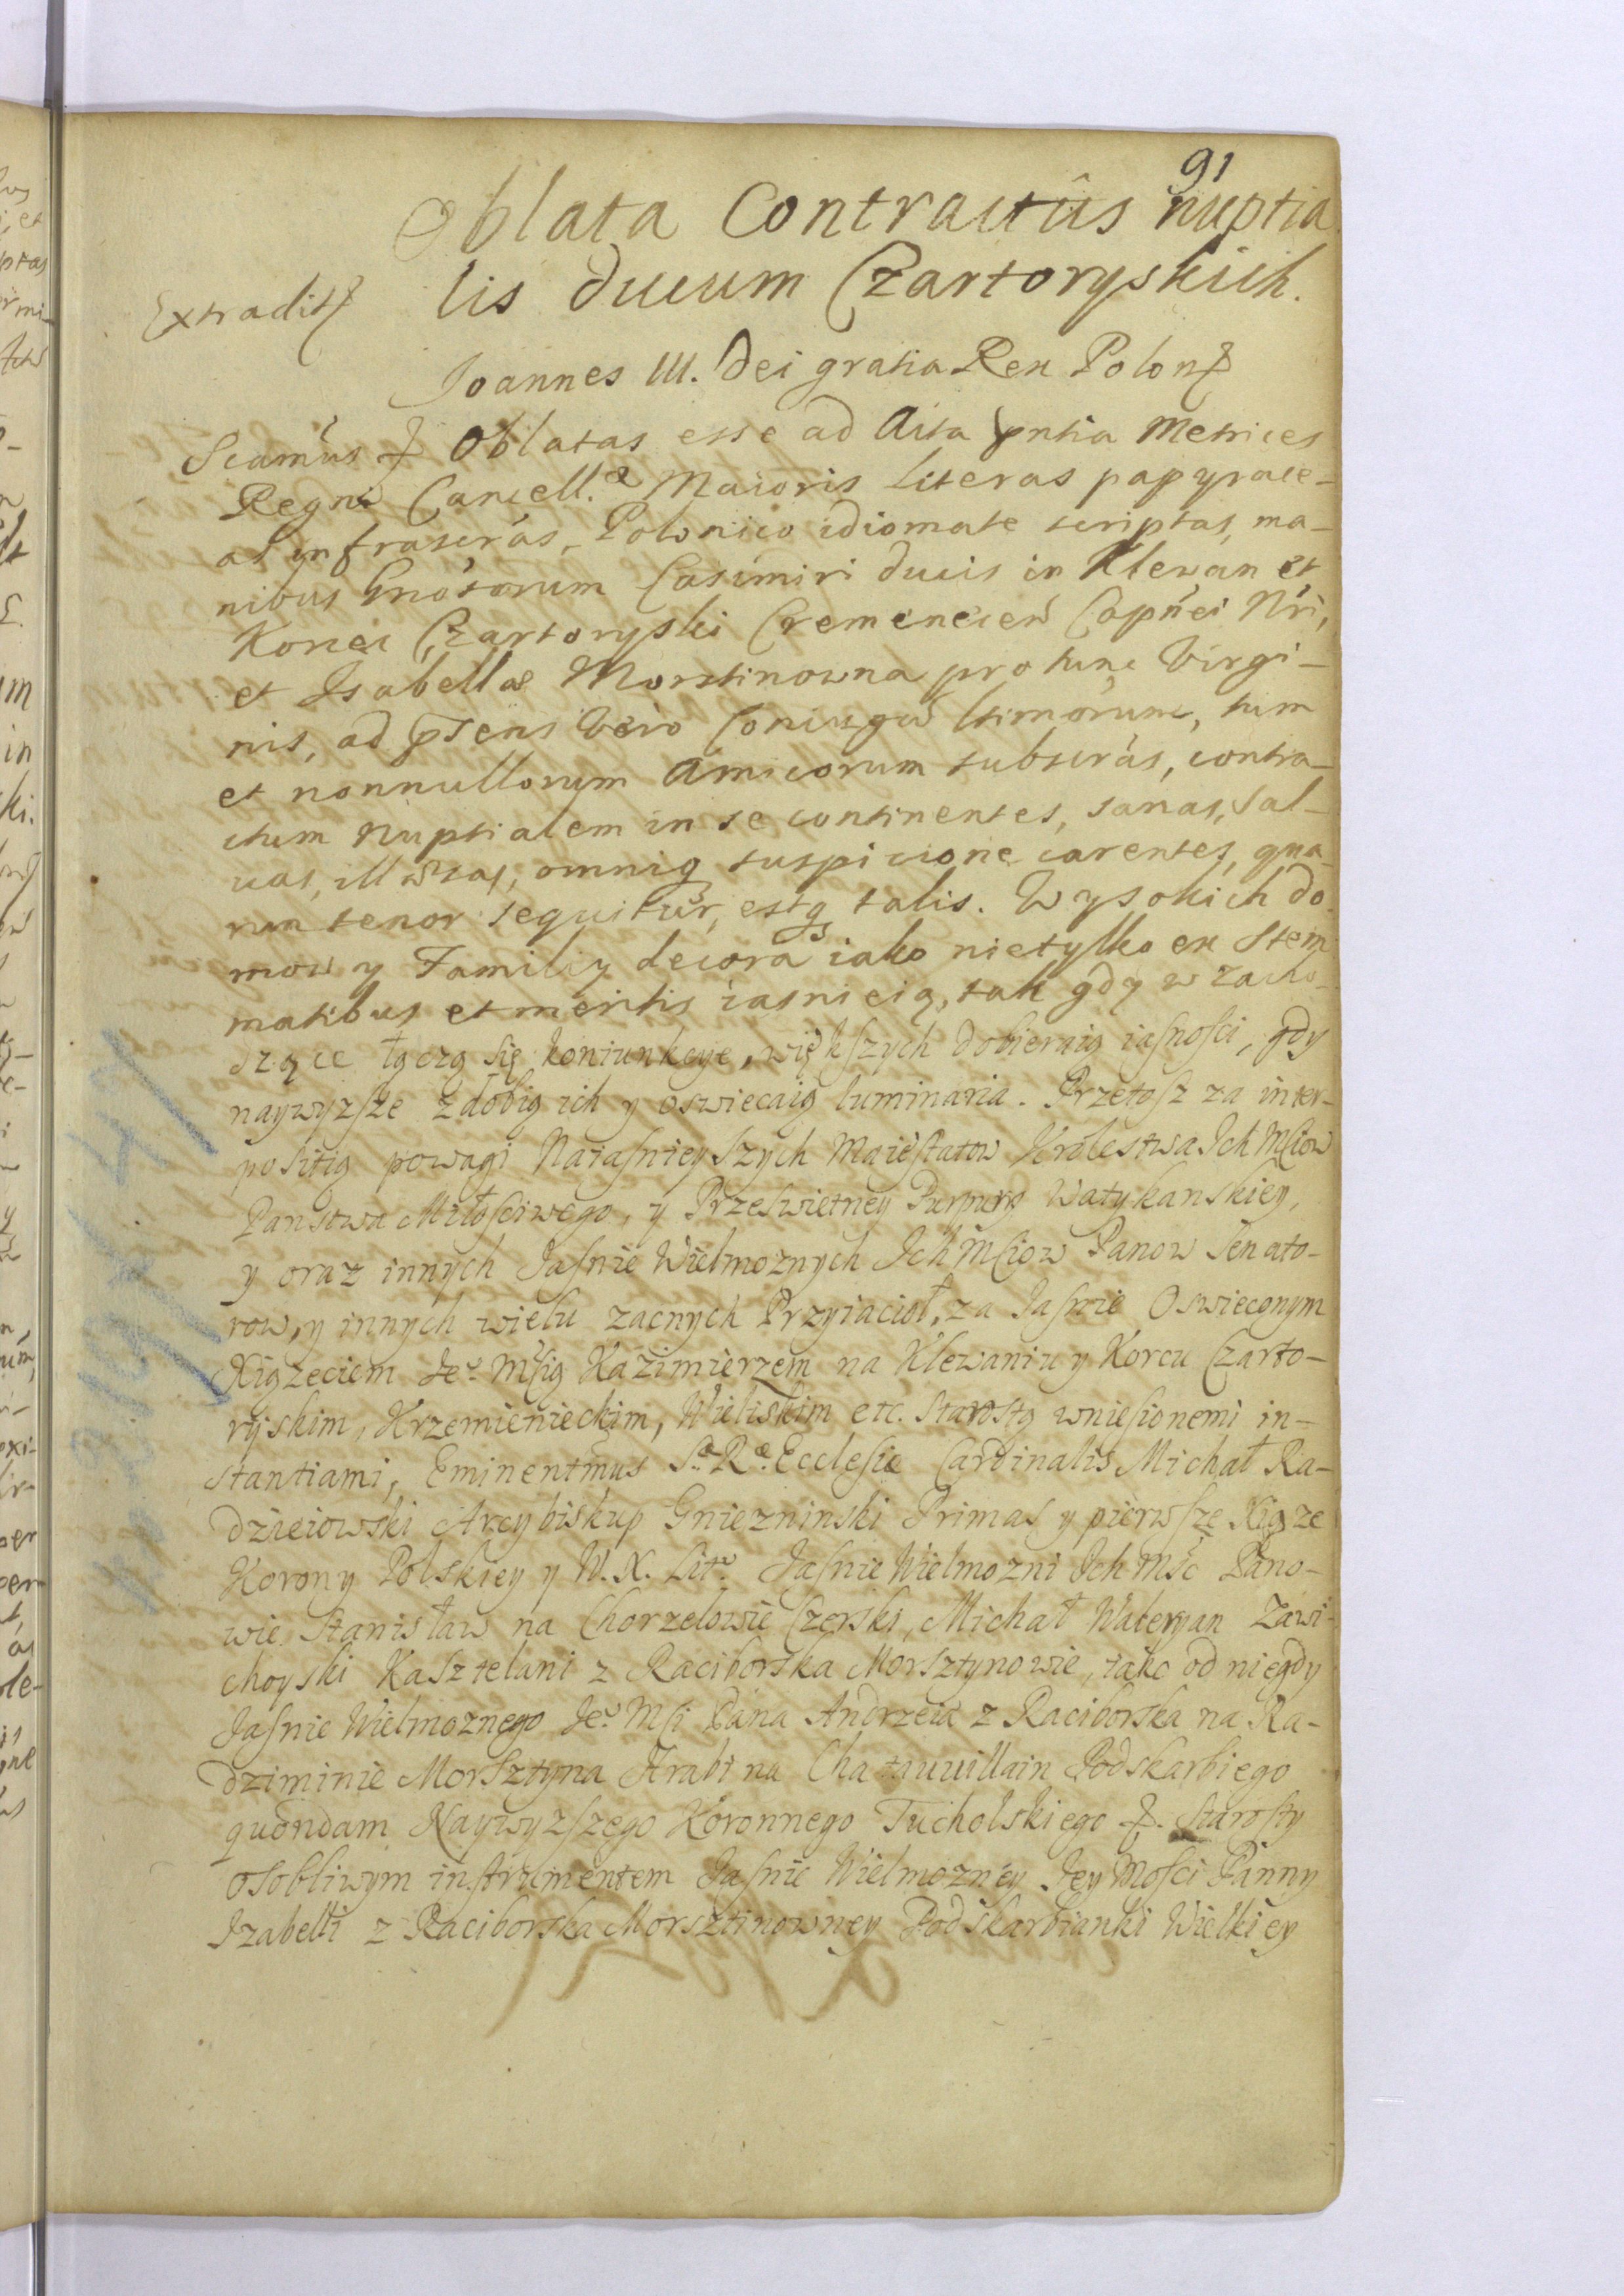 91
Oblata Contractûs nuptia
lis ducum Czartoryskich.
Extradit
Joannes III. Dei gratia Rex Polon
Scamus Oblatas esse ad Acta pntia Metrices
Regni Cancell.æ Maioris literas papyrace-
as infrascrás, Polonico idiomate scriptas, ma-
nibus Gnosorum Casimiri Ducis in Klewan et
Korzec Czartoryski Cremenecen Capnei Nri,
et Isabellæ Morstinowna pro tunc Virgi-
nis, ad psens vero Coniugũ ltimorum, tum
et nonnullorum Amicorum subscrás, contra-
ctum Nuptialem in se continentes, sanas, sal-
uas, illæsas, omniq suspicione carentes, qua-
rum tenor sequitur, estq talis. Wysokich do
mow y Familiy decora iako nietylko ex Stem
matibus et meritis iasnieią, tak gdy w zacho
szące łączą się koniunkcye, większych dobieraią iasnosci, gdy
naywyzsze zdobią ich y oswiecaią luminaria. Przetosz za inter-
positią powagi Naiasnieyszych Maiestatow Krolestwa Ich Mciow
Panstwa Miłosciwego, y Przeswietney Purpury Watykanskiey,
y oraz innych Jasnie Wielmoznych Ich Mciow Panow Senato-
row, y innych wielu zacnych Przyiacioł, za Jasnie Oswieconym
Xiązeciem Je° Mścią Kazimierzem na Klewaniu y Korcu Czarto-
ryskim, Krzemienieckim, Wieliskim etc. Starostą wniesionemi in-
stantiami, Eminentmus S.æ R.æ Ecclesiæ Cardinalis Michał Ra-
dzieiowski Arcybiskup Gniezninski Primas y pierwsze Xiąze
Korony Polskiey y W. X. Lit° Jasnie Wielmozni Ich Mśc Pano-
wie Stanisław na Chorzelowie Czerski, Michał Waleryan Zawi-
choyski Kasztelani z Raciborska Morsztynowie, iako od niegdy
Jasnie Wielmoznego Je° Mści Pana Andrzeia z Raciborska na Ra-
dziminie Morsztyna Hrabi na Chatauvillain Podskarbiego
quondam Naywyzszego Koronnego Tucholskiego Starosty
osobliwym instrumentem Jasnie Wielmozney Jey Mosci Panny
Izabelli z Raciborska Morsztinowney Podskarbianki Wielkiey